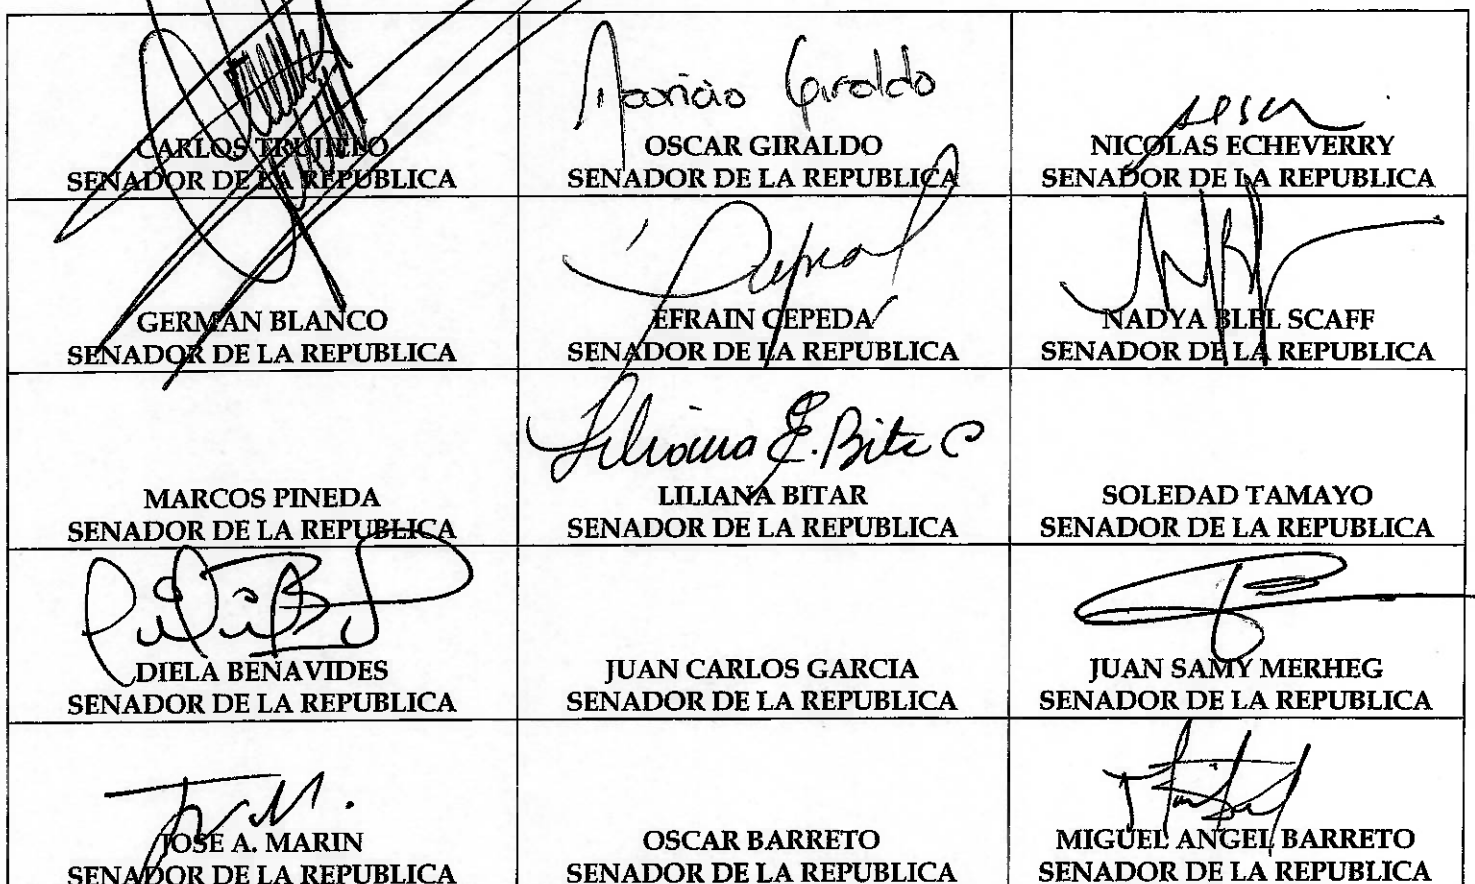 Mauricio Giraldo
CARLOS TRUJILLO
SENADOR DE LA REPUBLICA
OSCAR GIRALDO
SENADOR DE LA REPUBLICA
NICOLAS ECHEVERRY
SENADOR DE LA REPUBLICA
GERMAN BLANCO
SENADOR DE LA REPUBLICA
EFRAIN CEPEDA
SENADOR DE LA REPUBLICA
NADYA BLEL SCAFF
SENADOR DE LA REPUBLICA
Liliana E. Bitar
MARCOS PINEDA
SENADOR DE LA REPUBLICA
LILIANA BITAR
SENADOR DE LA REPUBLICA
SOLEDAD TAMAYO
SENADOR DE LA REPUBLICA
DIELA BENAVIDES
SENADOR DE LA REPUBLICA
JUAN CARLOS GARCIA
SENADOR DE LA REPUBLICA
JUAN SAMY MERHEG
SENADOR DE LA REPUBLICA
JOSE A. MARIN
SENADOR DE LA REPUBLICA
OSCAR BARRETO
SENADOR DE LA REPUBLICA
MIGUEL ANGEL BARRETO
SENADOR DE LA REPUBLICA